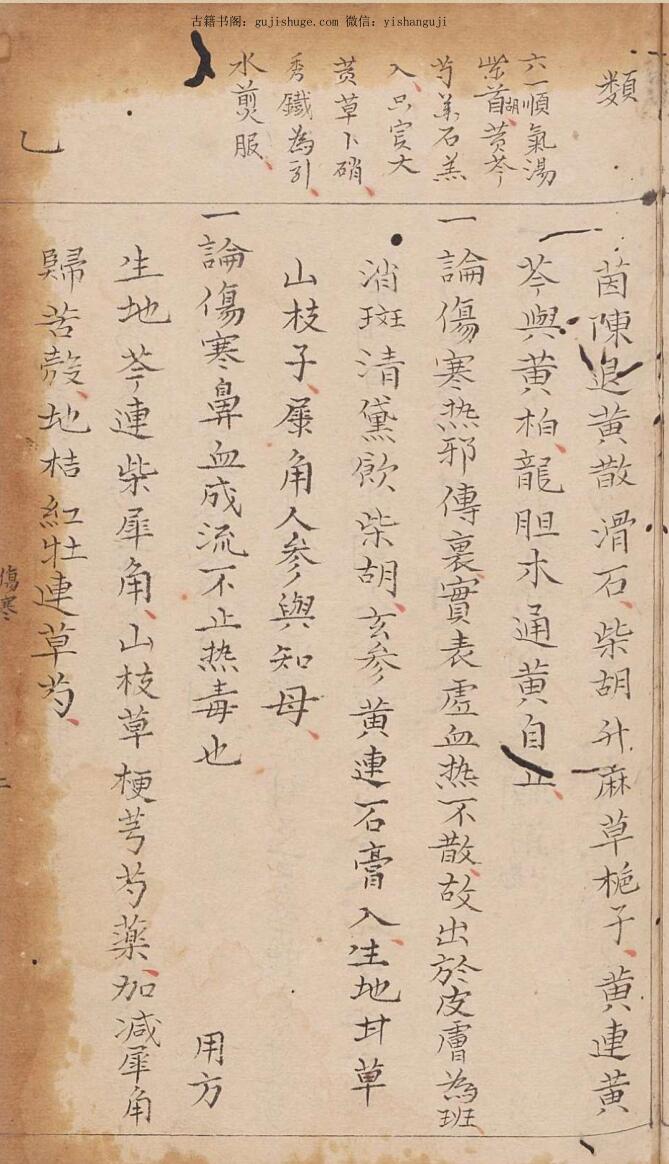 古籍书阁：gujishuge.com 微信：yishanguji
類
六一順氣湯
柴首胡黄芩
芍薬石羔
入只宲大
黄草卜硝
秀鐵為引
水煎服
乙
茵陳退黄散滑石柴胡升麻草栀子黄連黄
芩與黄柏龍胆木通黄自止
一論傷寒热邪傳裏實表虛血热不散故出於皮膚為班
消斑清黛飲柴胡玄参黄連石膏入生地甘草
山枝子犀角人参與知母
一論傷寒鼻血成流不止热毒也 用方
生地芩連柴犀角山枝草梗芎芍薬加减犀角
歸苦殼地桔紅牡連草芍
傷寒